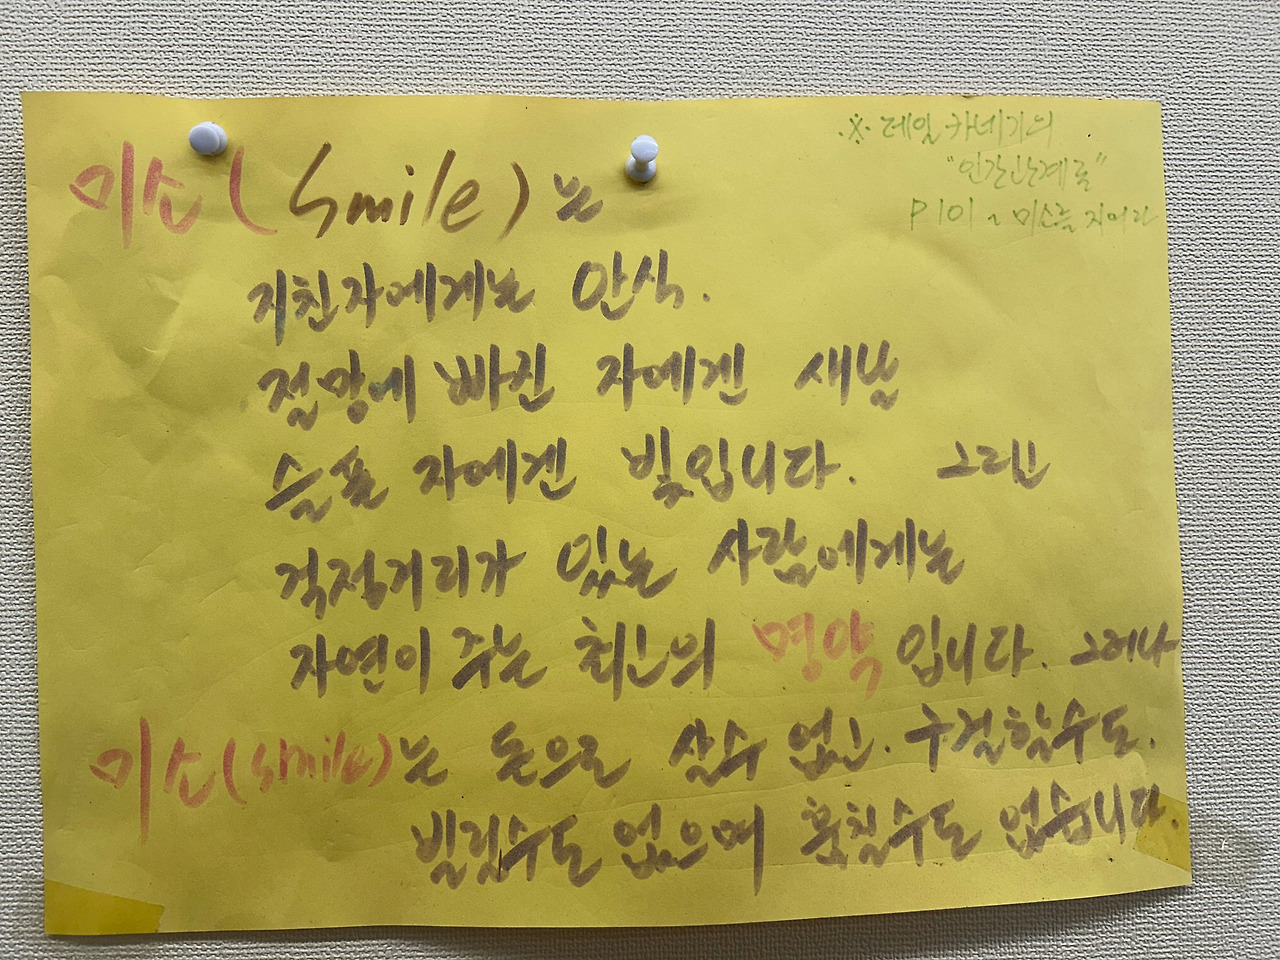 ※ 데일 카네기의
"인간관계론"
P101 ~ 미소를 지어라
미소(Smile)는
지친자에게는 안식.
절망에 빠진 자에겐 새날
슬픔 자에겐 빛입니다. 그리고
걱정거리가 있는 사람에게는
자연이 주는 최고의 명약입니다. 그러나
미소(smile)는 돈으로 살수 없고. 구걸할수도.
빌릴수도 없으며 훔칠수도 없습니다.